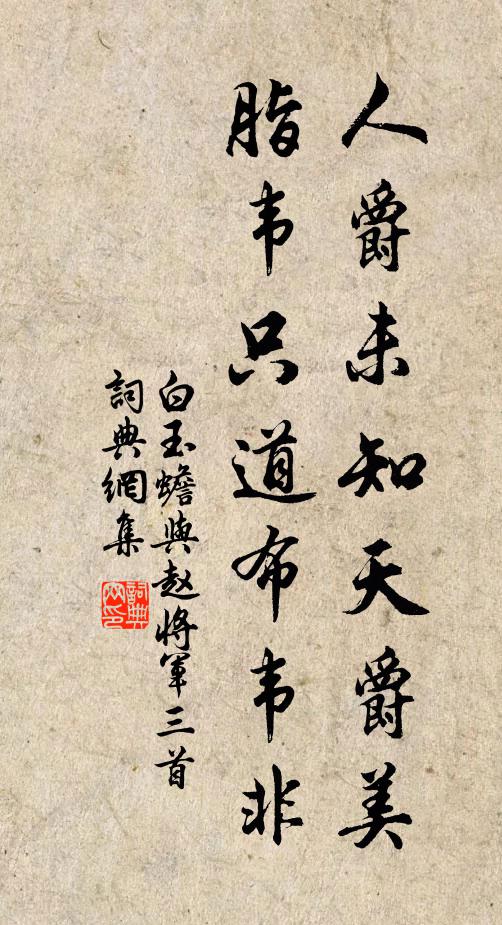 人爵未知天爵美
脂韦只道布韦非
白玉蟾與赵將軍三首
詞典網集
詞典网印